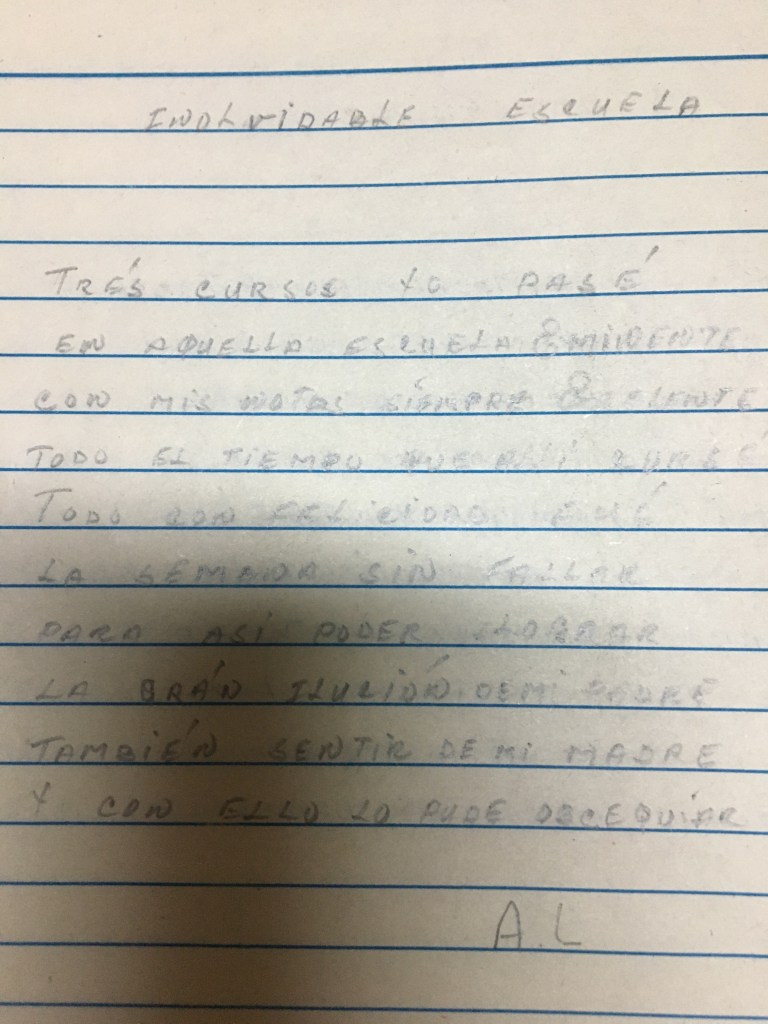 INOLVIDABLE ESCUELA
TRÉS CURSOS YO PASÉ
EN AQUELLA ESCUELA EMINENTE
CON MIS NOTAS SIEMPRE
TODO EL TIEMPO QUE ALLÍ CURSÉ
TODO CON FELICIDAD FUÉ
LA SEMANA SIN FALLAR
PARA ASÍ PODER LOGRAR
LA GRÁN ILUCIÓN DE MI PADRE
TAMBIÉN SENTIR DE MI MADRE
Y CON ELLO LO PUDE OBCEQUIAR
A.L